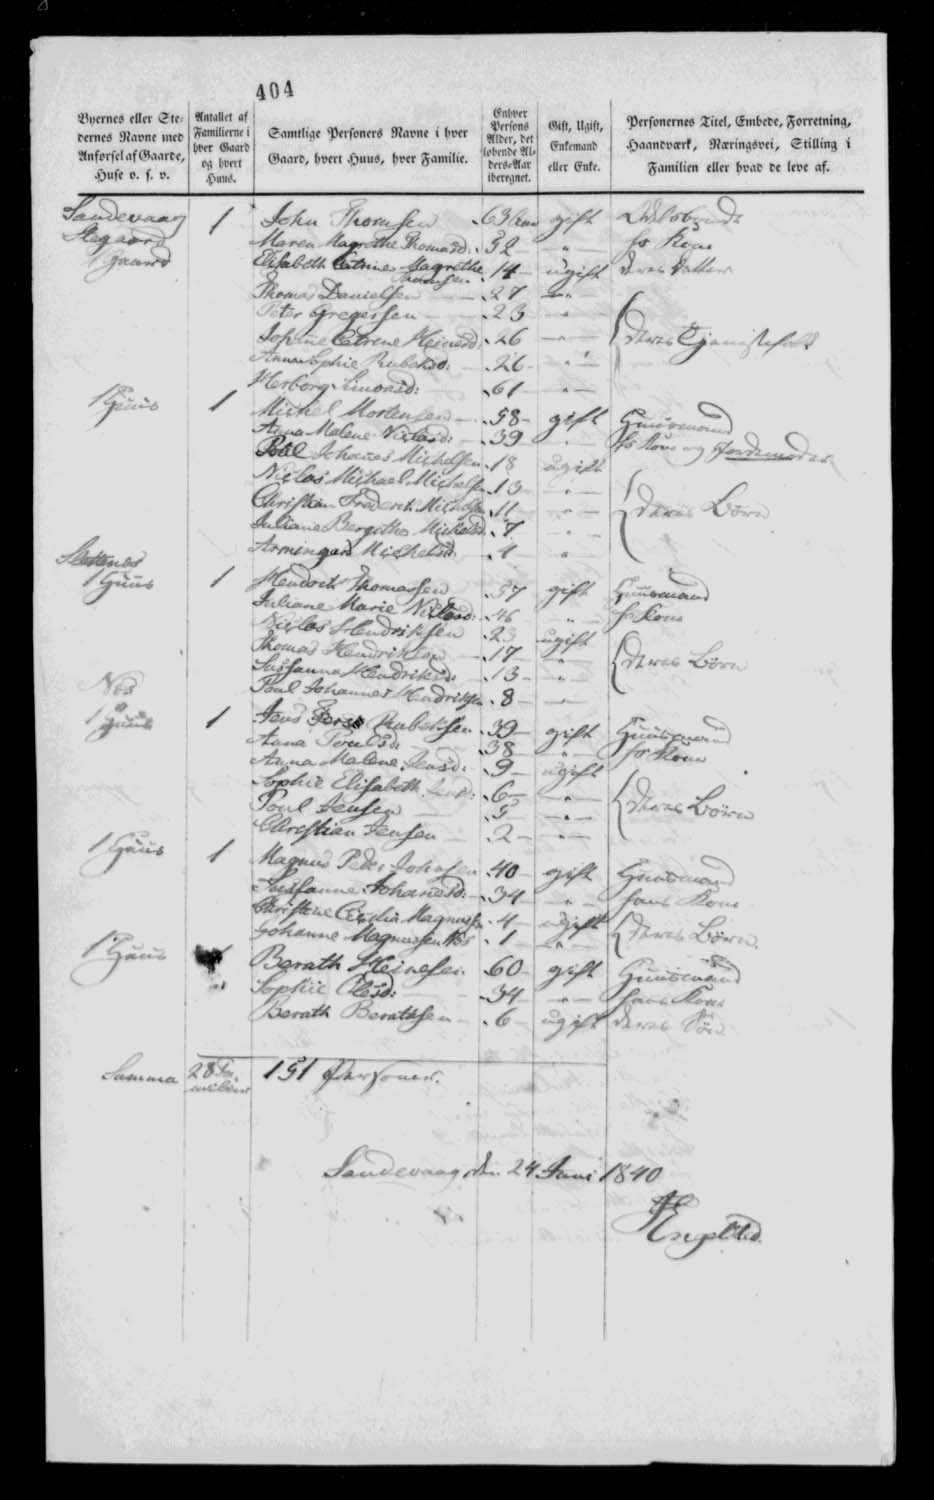 404
Byernes eller Stedernes Navne med Anførsel af Gaarde, Huse o. s. v.
Antallet af Familierne i hver Gaard og hvert Huus.
Samtlige Personers Navne i hver Gaard, hvert Huus, hver Familie.
Enhver Persons Alder, det løbende Alders-Aar iberegnet.
Gift, Ugift, Enkemand eller Enke.
Personernes Titel, Embede, Forretning, Haandværk, Næringsvei, Stilling i Familien eller hvad de leve af.
Sandevaag 1 John Thomsen 63 gift
Maren Magrethe Thomasd: 52 " hs Kone
1 Gaard Elisabeth Catrine Magrethe Thomsen 14 ugift deres Datter
Thomas Danielsen 27 "
Peter Gregersen 23 "
Catrine Heinesd: 26 " deres Tjenistefolk
Anna Sophie Rubeksd: 26 "
Herborg Simonsd: 61 "
1 Huus 1 Michel Mortensen 58 gift Huusmand
Anna Malene Niclasd: 39 " hs Kone og Jordemoder
Poul Johanes Michelsen 18 ugift
Niclas Michael Michelsen 13 "
Christian Frederik Michelsen 11 " deres Børn
Juliane Bergithe Michelsd 7 "
Armingard Michelsd 4 "
1 Huus 1 Hendrik Thomassen 57 gift Huusmand
Juliane Marie Niclasd: 46 " hs Kone
Niclas Hendriksen 23 ugift
Thomas Hendriksen 17 " deres Børn
Sussanna Hendriksd: 13 "
Poul Johannes Hendriksen 8 "
1 Huus 1 Jens Rubeksen 39 gift Huusmand
Anna Poulsd: 38 " hs Kone
Anna Malene Jensd: 9 ugift
Sophie Elisabeth Jensd: 6 "
Poul Jensen 5 " deres Børn
Christian Jensen 2 "
1 Huus 1 Magnus Peder Johnsen 40 gift Huusmand
Sussanne Johanesd: 34 " hans Kone
Christene Cicilia Magnussen 4 ugift deres Børn.
Johanne Magnussen 1 "
1 Huus 1 Berath Heinesen 60 gift Huusmand
Sophie Olesd: 34 " hans Kone
Berath Berathsen 6 ugift deres Søn
Summa 28 Familier 151 Personer.
Sandevaag den 24 Juni 1840